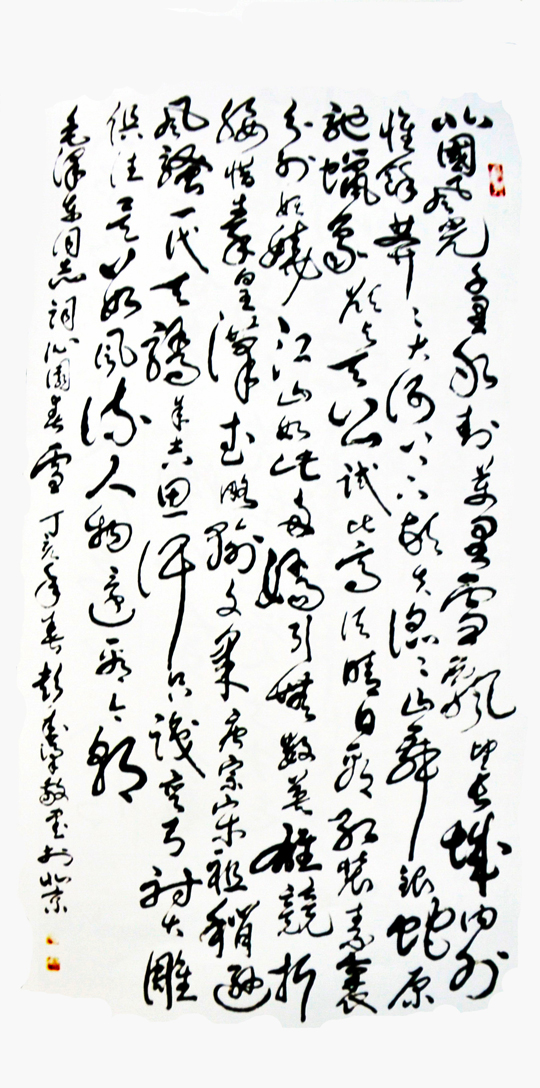 北國風光千里冰封萬里雪飄望長城内外
惟餘莽々大河上下頓失滔々山舞銀蛇原
馳蠟象欲與天公試比高須晴日看紅裝素裹
分外妖嬈江山如此多嬌引無數英雄競折
腰惜秦皇漢武略輸文采唐宗宋祖稍遜
風騷一代天驕成吉思汗只識彎弓射大雕
俱往矣數風流人物還看今朝
毛澤東同志詞沁園春雪丁亥年春敬書於北京